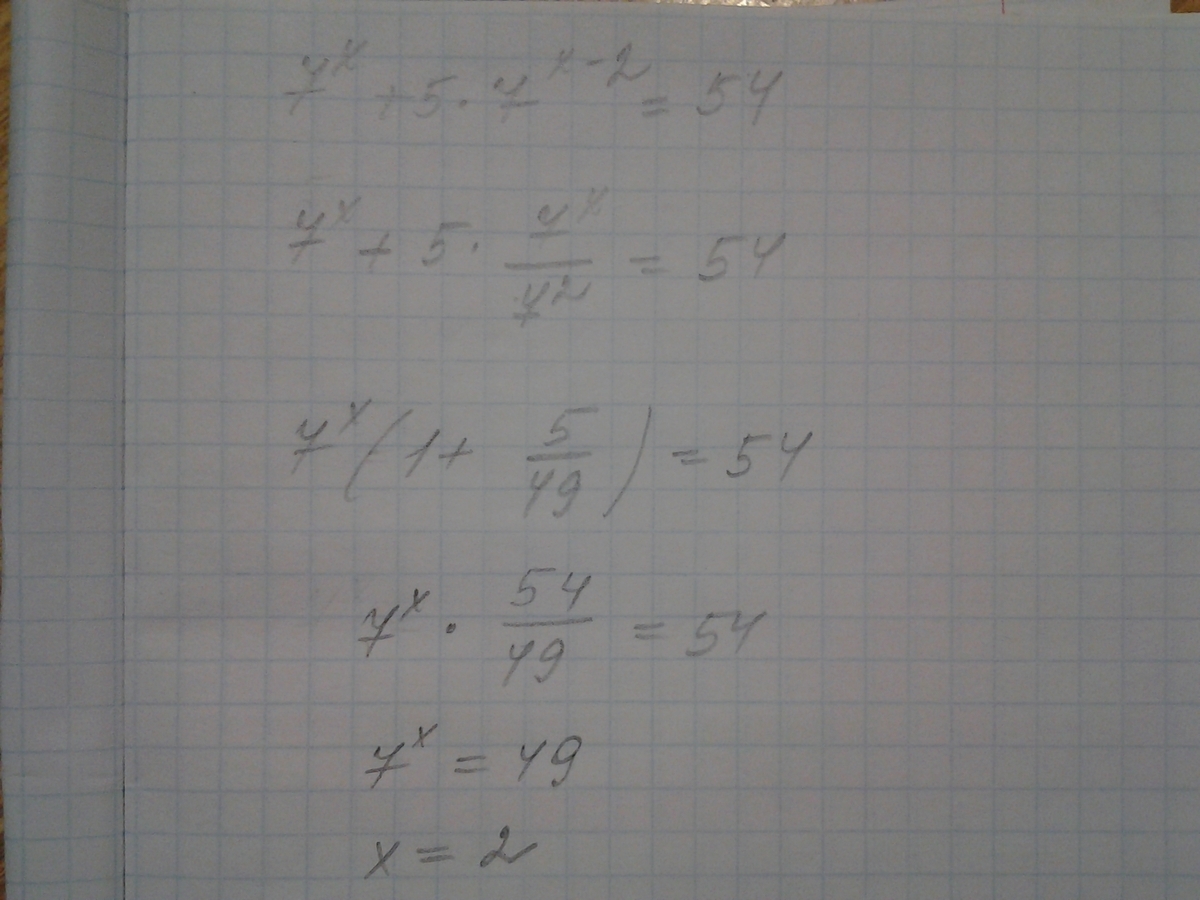 7^x + 5 · 7^(x-2) = 54
7^x + 5 · 7^x / 7^2 = 54
7^x (1 + 5/49) = 54
7^x · 54/49 = 54
7^x = 49
x = 2